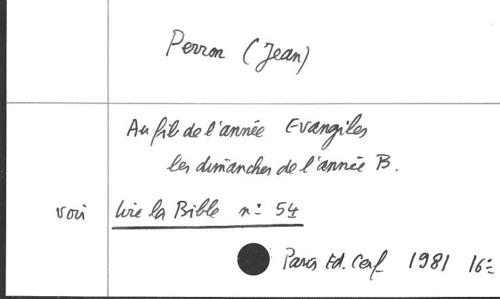 Perron (Jean)
Au fil de l'année Evangiles
les dimanches de l'année B.
voir lire la Bible n° 54
Paris Ed. Cerf 1981 16=